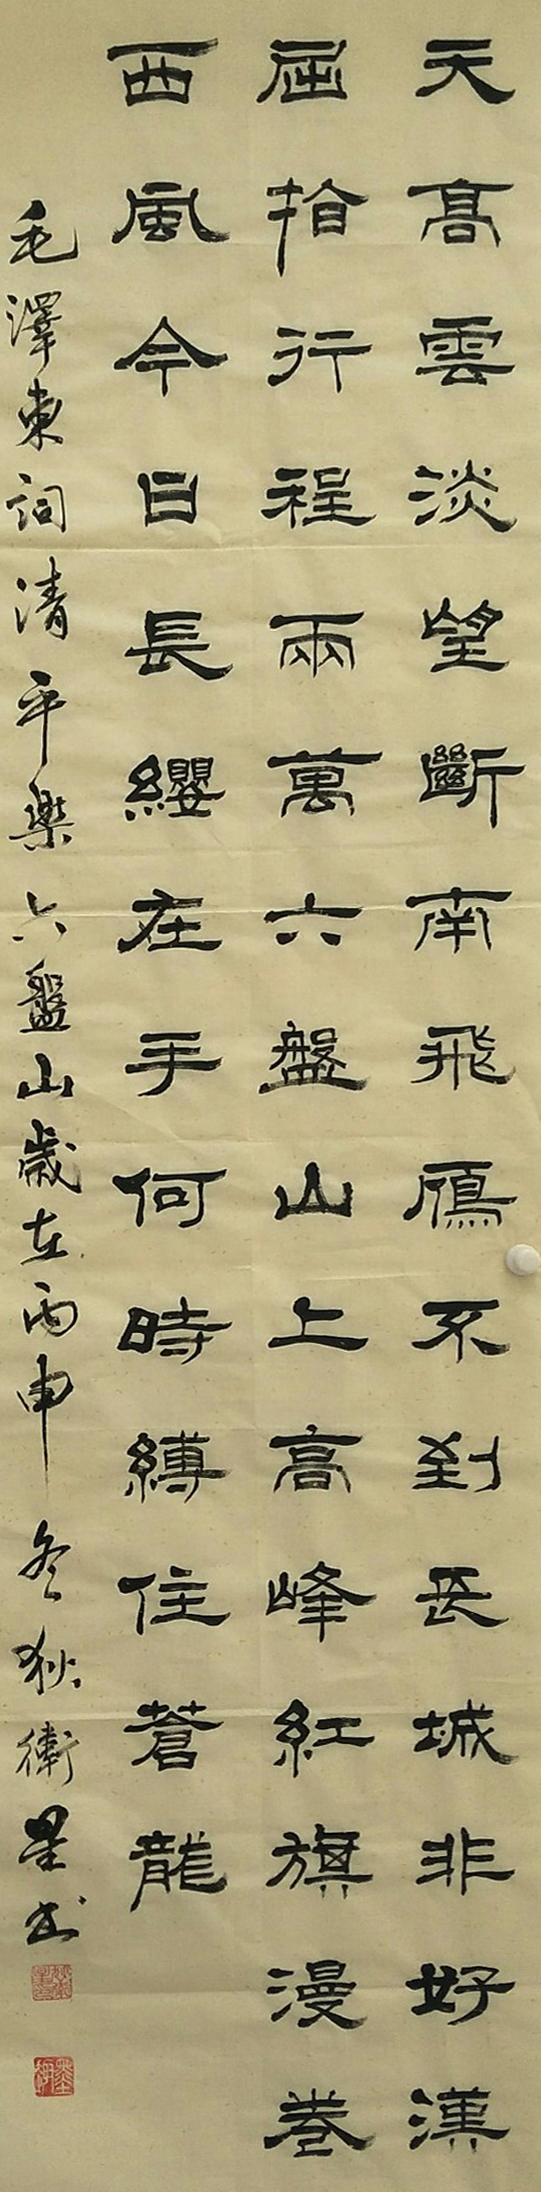 天高雲淡望斷南飛鴈不到長城非好漢
屈指行程兩萬六盤山上高峰紅旗漫卷
西風今日長纓在手何時縛住蒼龍
毛澤東詞清平樂六盤山歲在丙申冬狄衛星書